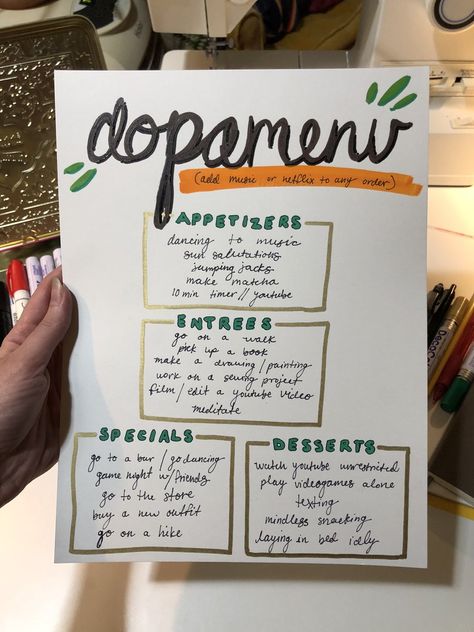 dopamenu
(add music or netflix to any order)
APPETIZERS
dancing to music
sun salutations
jumping jacks
make matcha
10 min timer // youtube
ENTREES
go on a walk
pick up a book
make a drawing / painting
work on a sewing project
film / edit a youtube video
meditate
SPECIALS
go to a bar / go dancing
game night w/ friends
go to the store
buy a new outfit
go on a hike
DESSERTS
watch youtube unrestricted
play videogames alone
texting
mindless snacking
laying in bed idly